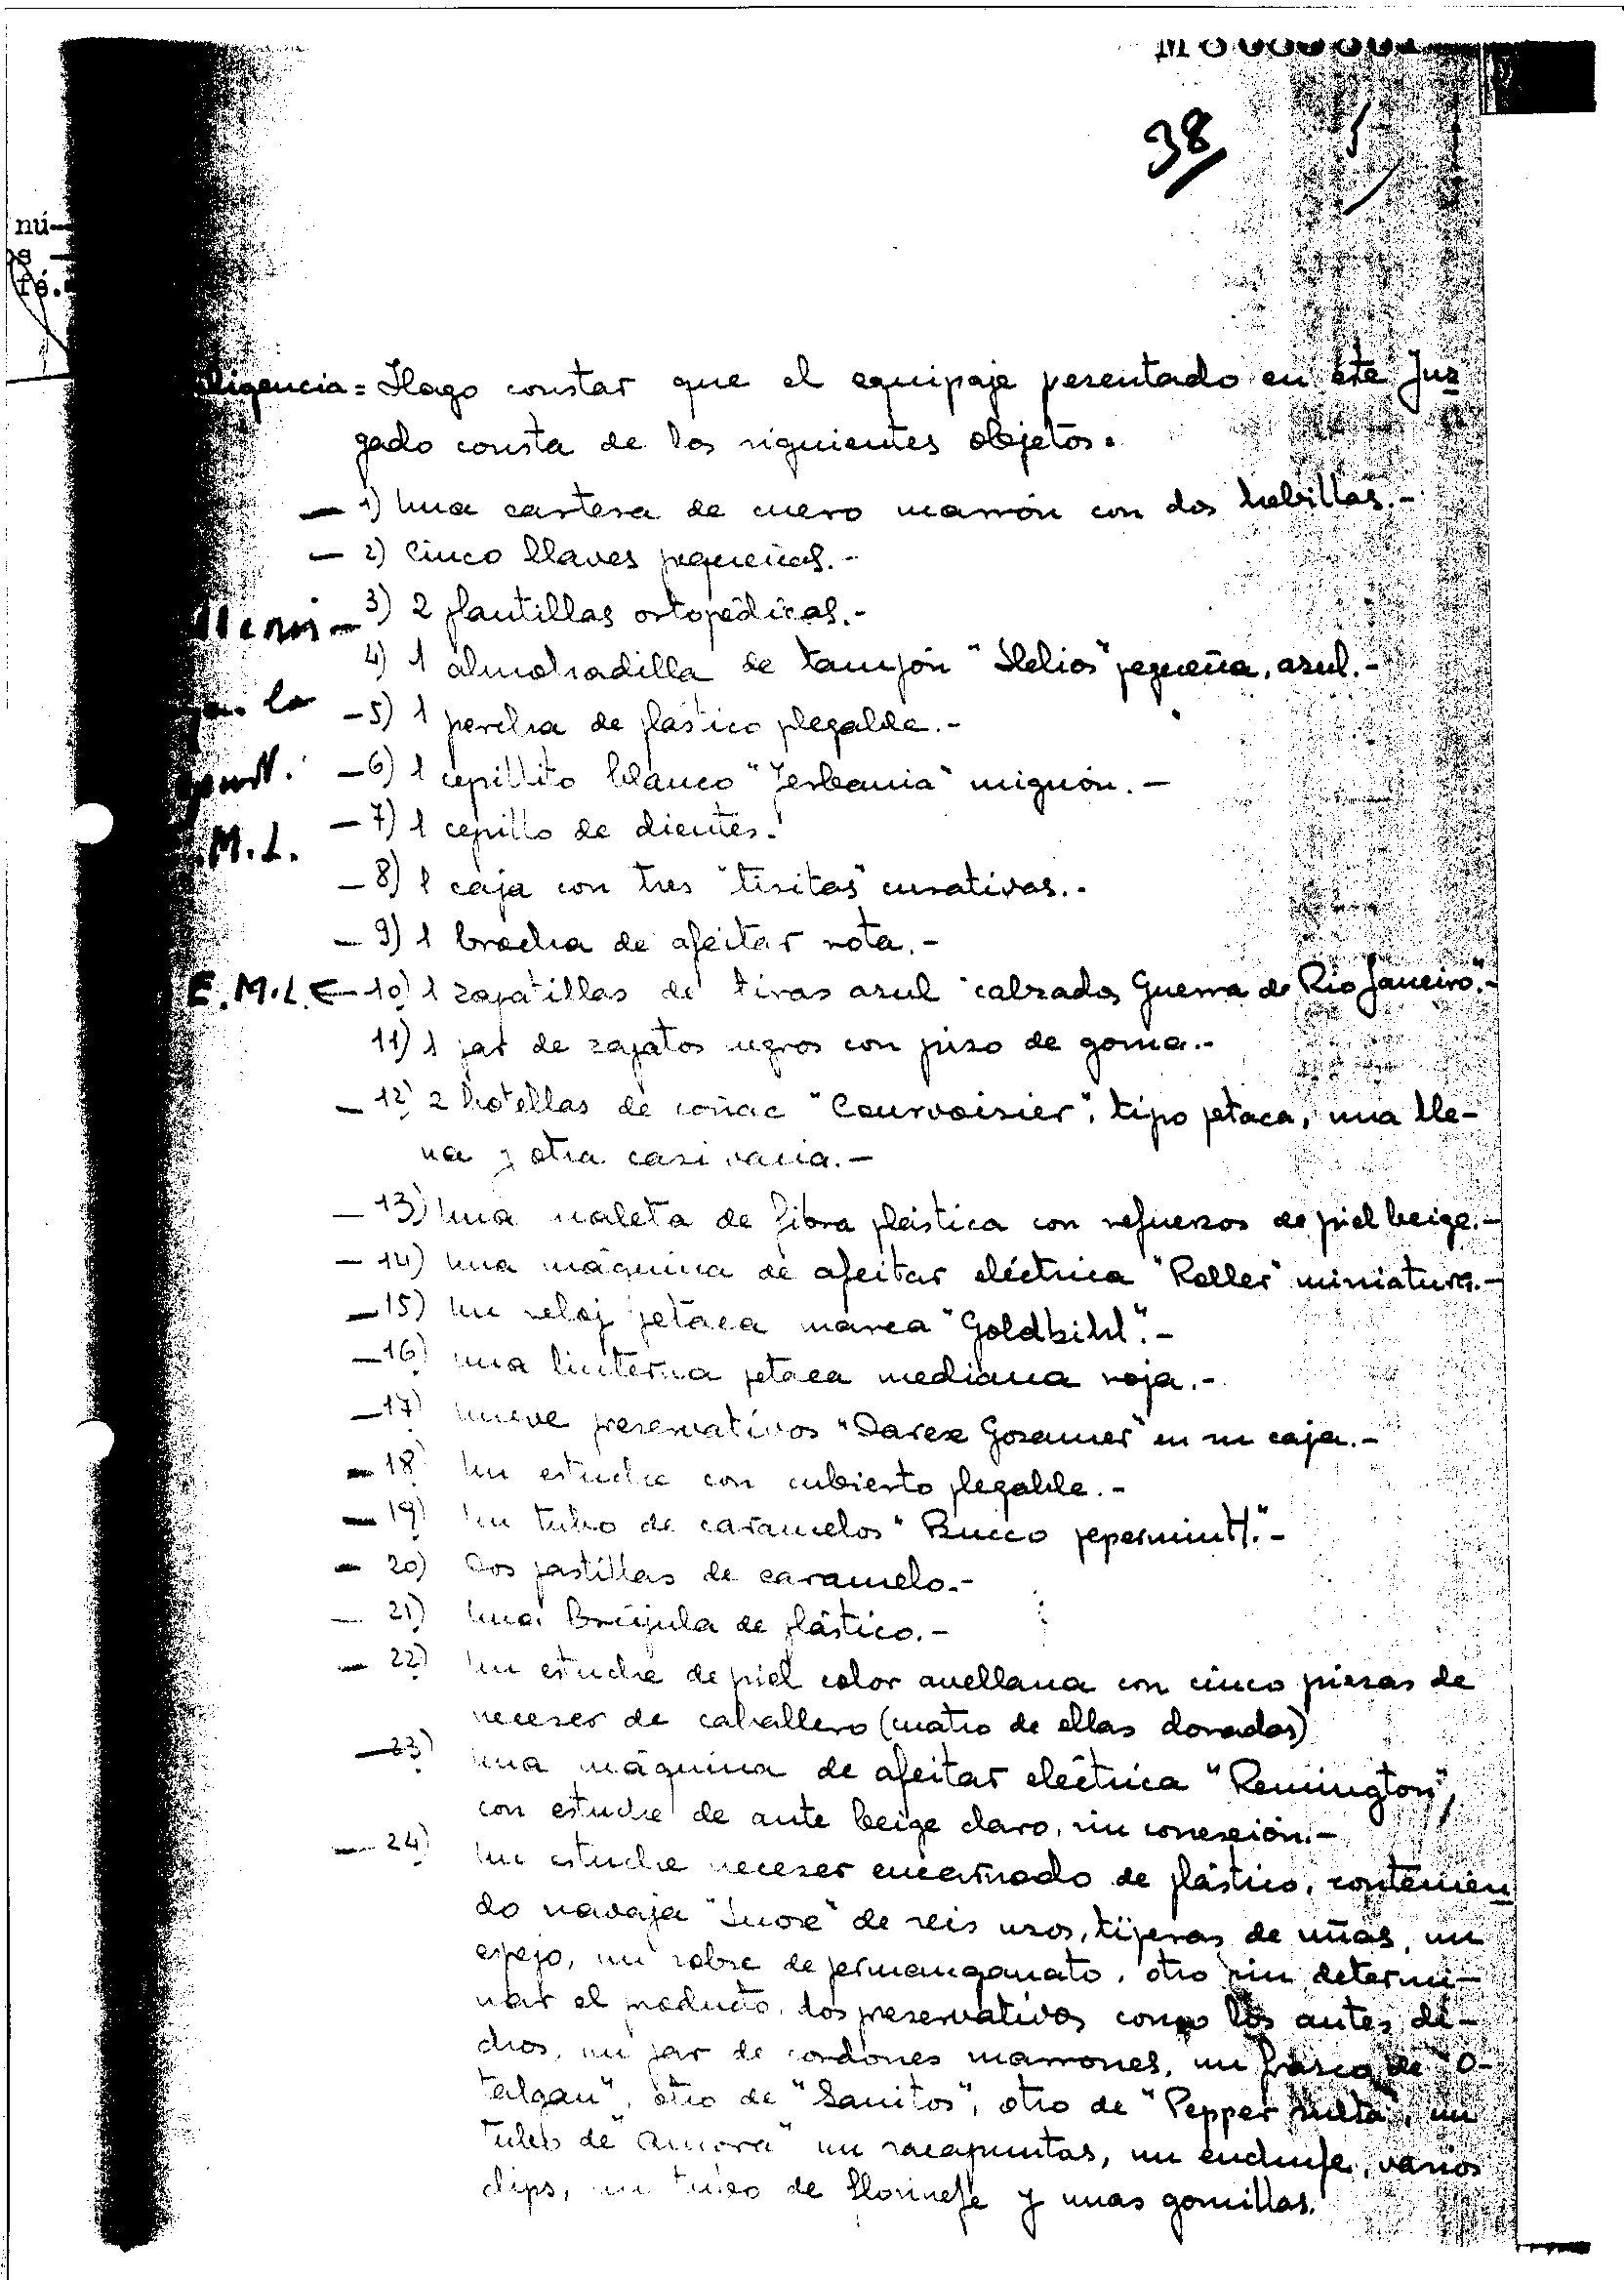 38
nú-
s -
fé.
ligencia = Hago constar que el equipaje pesentado en éste Juz
gado consta de los siguientes objetos.
- 1) Una cartera de cuero marrón con dos hebillas.-
- 2) Cinco llaves pequeñas.-
3) 2 plantillas ortopédicas.-
4) 1 almohadilla de tampón "Helios" pequeña, azul.-
la
-5) 1 percha de plástico plegable.-
-6) 1 cepillito blanco "Jesbania" mignón.-
-7) 1 cepillo de dientes.-
M.L.
-8) 1 caja con tres "tiritas" curativas.-
- 9) 1 brocha de afeitar rota.-
E.M.L.E - 10) 1 zapatillas de tiras azul "calzados Guerra de Rio Janeiro".-
11) 1 par de zapatos negros con piso de goma.-
- 12) 2 botellas de coñac "Courvoisier", tipo petaca, una lle-
na y otra casi vacia.-
- 13) Una maleta de fibra plástica con refuerzos de piel beige.-
- 14) Una máquina de afeitar eléctrica "Roller" miniatura.-
-15) Un reloj petaca marca "Goldbihl".-
-16) una linterna petaca mediana roja.-
-17) nueve preservativos "Darex Gosamer" en su caja.-
- 18) Un estuche con cubierto plegable.-
- 19) Un tubo de caramelos "Bucco pepermint".-
- 20) Dos pastillas de caramelo.-
- 21) Una Brújula de plástico.-
- 22) Un estuche de piel color avellana con cinco piezas de
neceser de caballero (cuatro de ellas doradas)
-23) Una máquina de afeitar eléctrica "Remington",
con estuche de ante beige claro, sin conexión.-
- 24) Un estuche neceser encarnado de plástico, contenien
do navaja de seis usos, tijeras de uñas, un
espejo, un sobre de permanganato, otro sin determi-
nar el producto, dos preservativos como los antes di-
chos, un par de cordones marrones, un frasco de "O-
talgan", otro de "Sanitos", otro de "Pepper", un
tubo de un sacapuntas, un enchufe, varios
clips, un tubo de y unas gomillas.